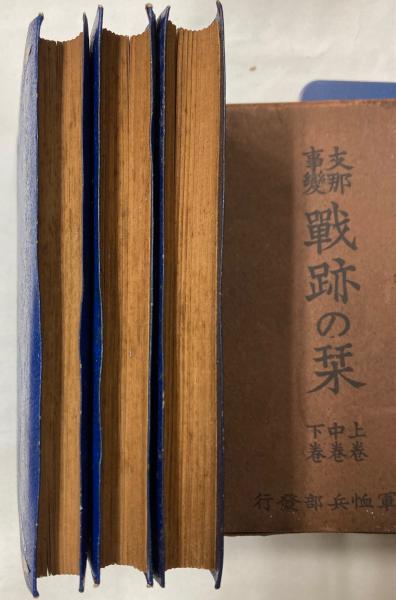 支那
事變
戰跡の栞
上卷
中卷
下卷
軍恤兵部發行